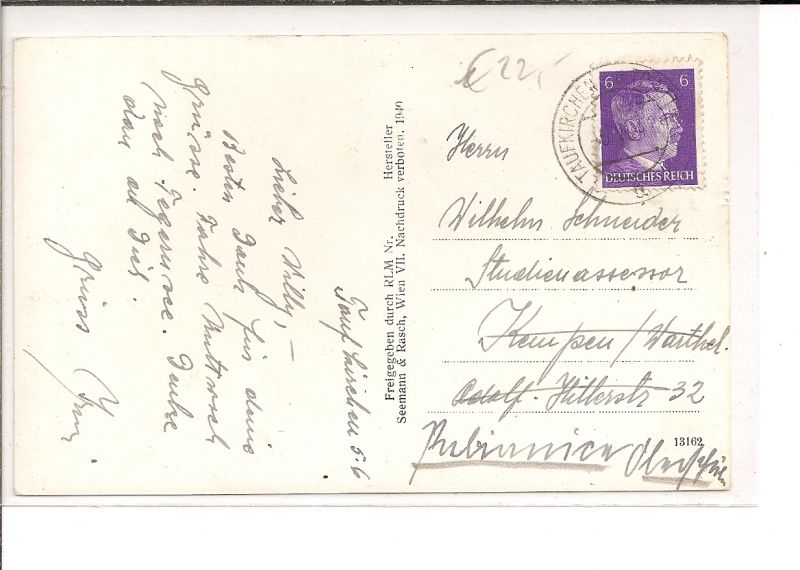 Taufkirchen 5.6
Lieber Willy, –
Besten Dank für deine
Grüsse. Fahre Mittwoch
nach Tegernsee. Denke
dran auf Dich.
Gruss
Freigegeben durch RLM Nr.
Hersteller
Seemann & Rasch, Wien VII. Nachdruck verboten. 1940
€ 22,-
TAUFKIRCHEN
6 6
DEUTSCHES REICH
Herrn
Wilhelm Schneider
Studienassessor
Kempen/Warthel.
Adolf-Hitlerstr 32
Pabianice
13162